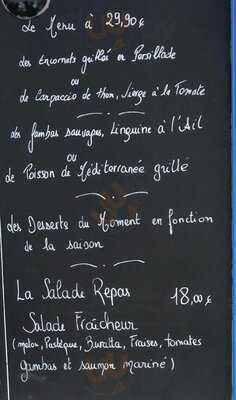 Le Menu à 29,90€
des Encornets grillés en Persillade
ou
de Carpaccio de thon, Vierge à la Tomate
des gambas sauvages, Linguine à l'Ail
ou
de Poisson de Méditerranée grillé
des Desserts du Moment en fonction
de la saison
La Salade Repas 18,00€
Salade Fraîcheur
(melon, Pastèque, Buratta, Fraises, tomates
gambas et saumon mariné)